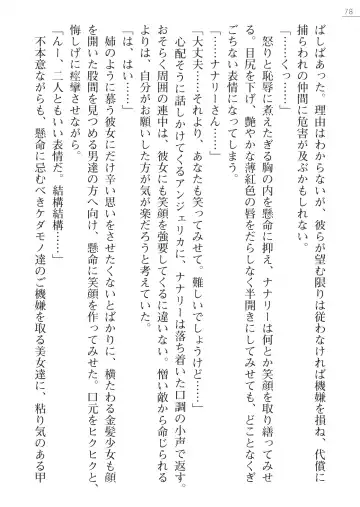 78
ばしばあった。理由はわからないが、彼らが望む限りは従わなければ機嫌を損ね、代償に
捕らわれの仲間に危害が及ぶかもしれない。
「……くっ……」
怒りと恥辱に煮えたぎる胸の内を懸命に抑え、ナナリーは何とか笑顔を取り繕ってみせ
る。目尻を下げ、艶やかな薄紅色の唇をだらしなく半開きにしてみせても、どことなくぎ
ごちない表情になってしまう。
「……ナナリーさん……」
「大丈夫……それより、あなたも笑ってみせて。難しいでしょうけど……」
心配そうに話しかけてくるアンジェリカに、ナナリーは落ち着いた口調の小声で返す。
おそらく周囲の連中は、彼女にも笑顔を強要してくるに違いない。憎い敵から命じられる
よりは、自分がお願いした方が気が楽だろうと考えていた。
「は、はい……」
姉のように慕う彼女にだけ辛い思いをさせたくないとばかりに、横たわる金髪少女も顔
を開いた股間を見つめる男達の方へ向け、懸命に笑顔を作ってみせた。口元をヒクヒクと、
悔しげに痙攣させながら。
「んー、二人ともいい表情だ。結構結構……」
不本意ながらも、懸命に忌むべきケダモノ達のご機嫌を取る美女達に、粘り気のある甲